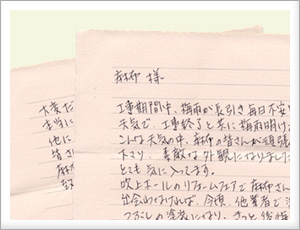 麻布 様
工事期間中、梅雨が長引き毎日不安
天気で、工事終了と共に梅雨明け
こんな天気の中、麻布の皆さんが頑張
下さり、素敵な外観になりました
とても気に入ってます。
吹上ホールのリフォームフェアで麻布さん
出会わなければ、今頃、他業者で
つぶしの塗装になり、きっと後悔
大変だ
本当に
他に
皆さ
麻布